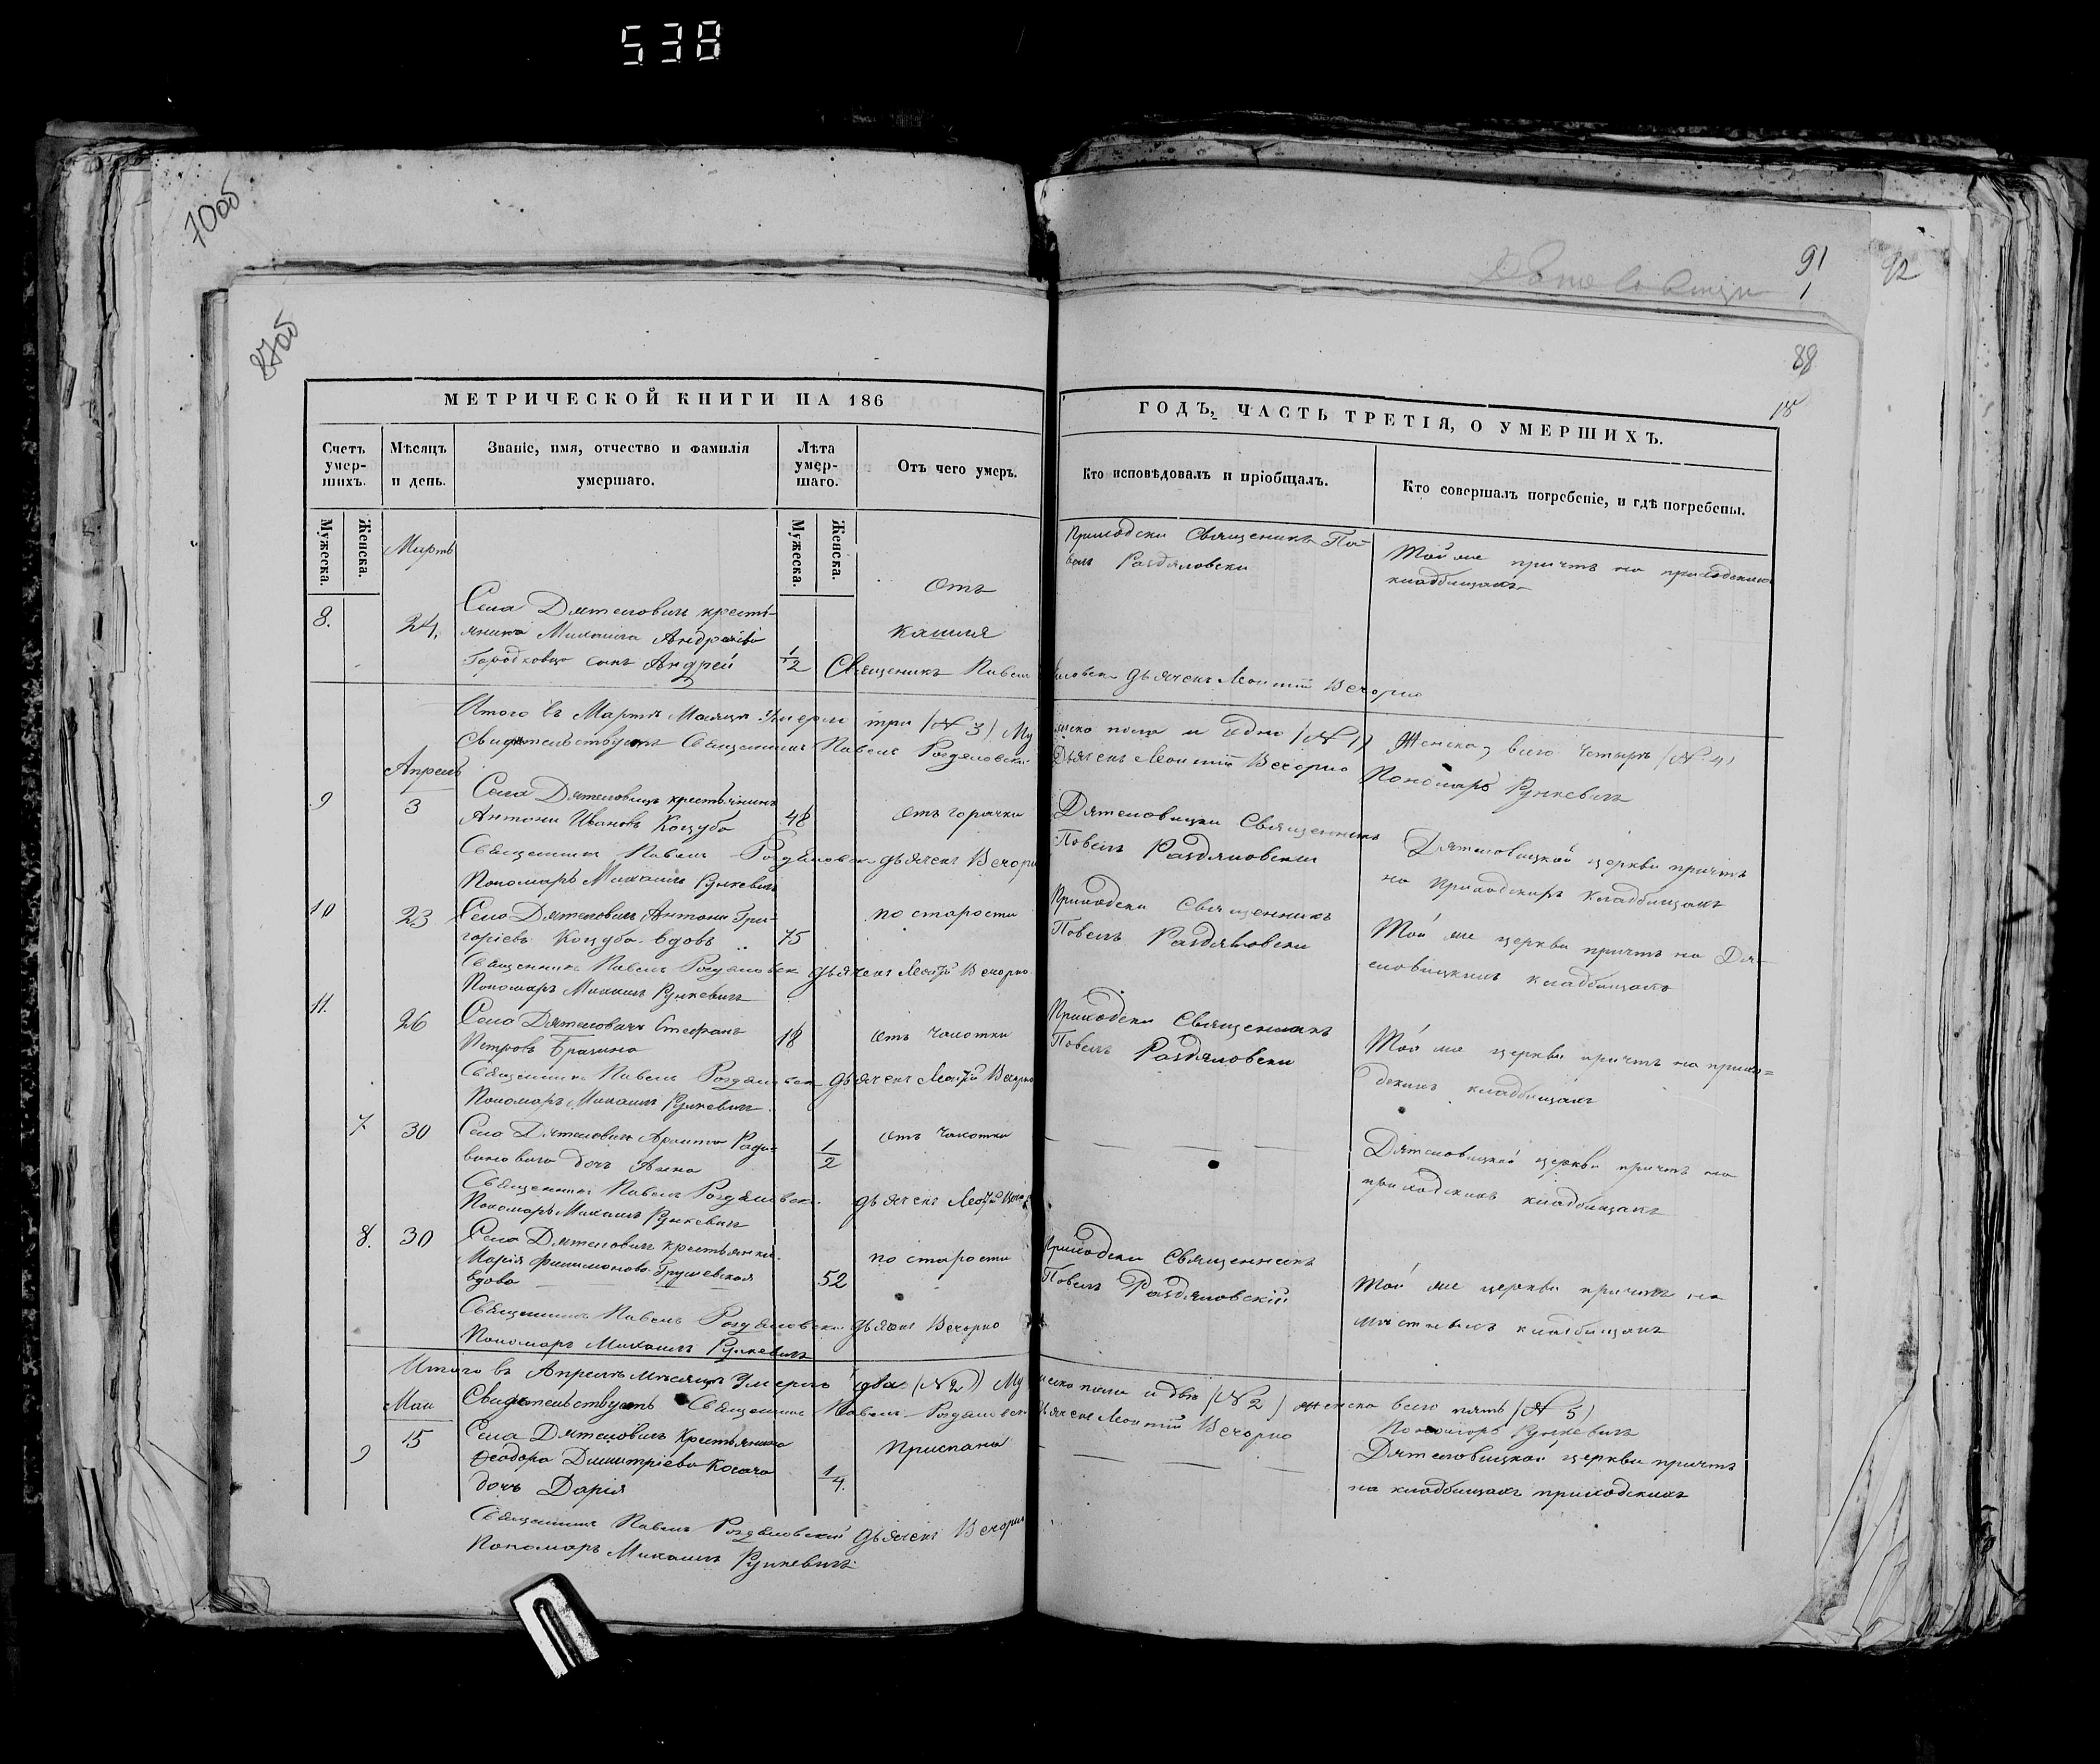 538
70об
87об
91
92
88
18
МЕТРИЧЕСКОЙ КНИГИ НА 186
ГОДЪ, ЧАСТЬ ТРЕТІЯ, О УМЕРШИХЪ.
Счетъ умер-шихъ.
Мѣсяцъ и день.
Званіе, имя, отчество и фамилія умершаго.
Лѣта умер-шаго.
Отъ чего умеръ.
Кто исповѣдовалъ и пріобщалъ.
Кто совершалъ погребеніе, и гдѣ погребены.
Мужеска.
Женска.
Мужеска.
Женска.
Мартъ
8.
24.
Села Дятеловичъ кресть-
янина Михаила Андреева
сынъ Андрей
1/2
Отъ
кашля
Приходски Священикъ Па-
велъ Раздяловски
Той же причтъ на приходскихъ
кладбищахъ
Священикъ Павелъ дьячекъ Леонтій Вечорко
Итого въ Мартѣ Месяце умерли три (№ 3) Мужеско пола и одна (№ 1) Женска, всего четыре (№ 4)
Свидетельствуетъ Священникъ Павелъ Роздяловски Дьячекъ Леонтій Вечорко Пономарь Рункевичъ
Апрель
9
3
Села Дятеловичъ крестьянинъ
Антони Ивановъ Коцуба
48
отъ горячки
Дятеловицки Священникъ
Павелъ Раздяловски
Дятеловицкой церкви причтъ
на Приходскихъ Кладбищахъ
Священникъ Павелъ Роздяловски дьячекъ Вечорко
Пономарь Михаилъ Рункевичъ
10
23
Села Дятеловичъ Антони Гри-
горіевъ Коцуба вдовъ
75
по старости
Приходски Священникъ
Павелъ Раздяловски
Той же церкви причтъ на Дя-
еловицкихъ кладбищахъ
Священникъ Павелъ Роздяловски дьячекъ Леонтій Вечорко
Пономарь Михаилъ Рункевичъ
11.
26
Села Дятеловичъ Стефанъ
Петровъ
18
отъ чахотки
Приходски Священникъ
Павелъ Раздяловски
Той же церкви причтъ на прихо=
дскихъ кладбищахъ
Священникъ Павелъ Роздяловски дьячекъ Леонтій Вечорко
Пономарь Михаилъ Рункевичъ
7
30
Села Дятеловичъ
дочь Анна
1/2
отъ чахотки
Дятеловицкой церкви причтъ на
приходскихъ кладбищахъ
Священникъ Павелъ Роздяловски дьячекъ Леонтій
Пономарь Михаилъ Рункевичъ
8.
30
Села Дятеловичъ крестьянка
Марія Филимонова Грушевская
вдова
52
по старости
Приходски Священникъ
Павелъ Раздяловскій
Той же церкви причтъ на
кладбищахъ
Священникъ Павелъ Роздяловски дьячекъ Вечорко
Пономарь Михаилъ Рункевичъ
Итого въ Апрелѣ месяце умерло два (№ 2) Мужеско пола и двѣ (№ 2) женска всего пять (№ 5)
Свидетельствуетъ Священникъ Павелъ Роздяловски Дьячекъ Леонтій Вечорко Пономарь Рункевичъ
Маи
9
15
Села Дятеловичъ Крестьянина
Феодора Димитріева Косача
дочь Дарія
1/4.
Приспана
Дятеловицкой церкви причтъ
на кладбищахъ приходскихъ
Священникъ Павелъ Роздяловскій дьячекъ Вечорко
Пономарь Михаилъ Рункевичъ